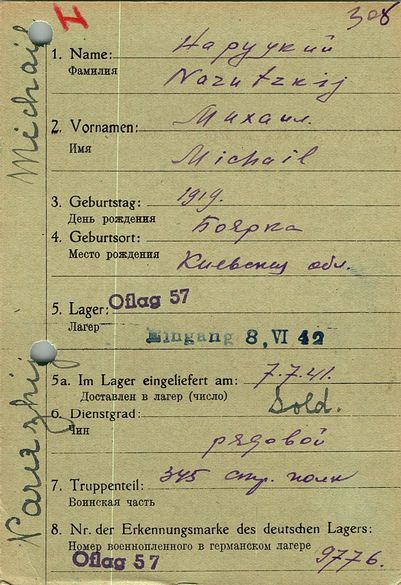 308
I
1. Name: Наруцкий
Фамилия
Narutzkij
2. Vornamen: Михаил.
Имя
Michail
3. Geburtstag: 1919.
День рождения
4. Geburtsort: Боярка
Место рождения
Киевский обл.
5. Lager: Oflag 57
Лагер
Eingang 8. VI 42
5a. Im Lager eingeliefert am: 7.7.41.
Доставлен в лагер (число)
6. Dienstgrad: Sold.
Чин
рядовой
7. Truppenteil: 345 стр. полк
Воинская часть
8. Nr. der Erkennungsmarke des deutschen Lagers:
Номер военнопленного в германском лагере
Oflag 57 9776.
Michail